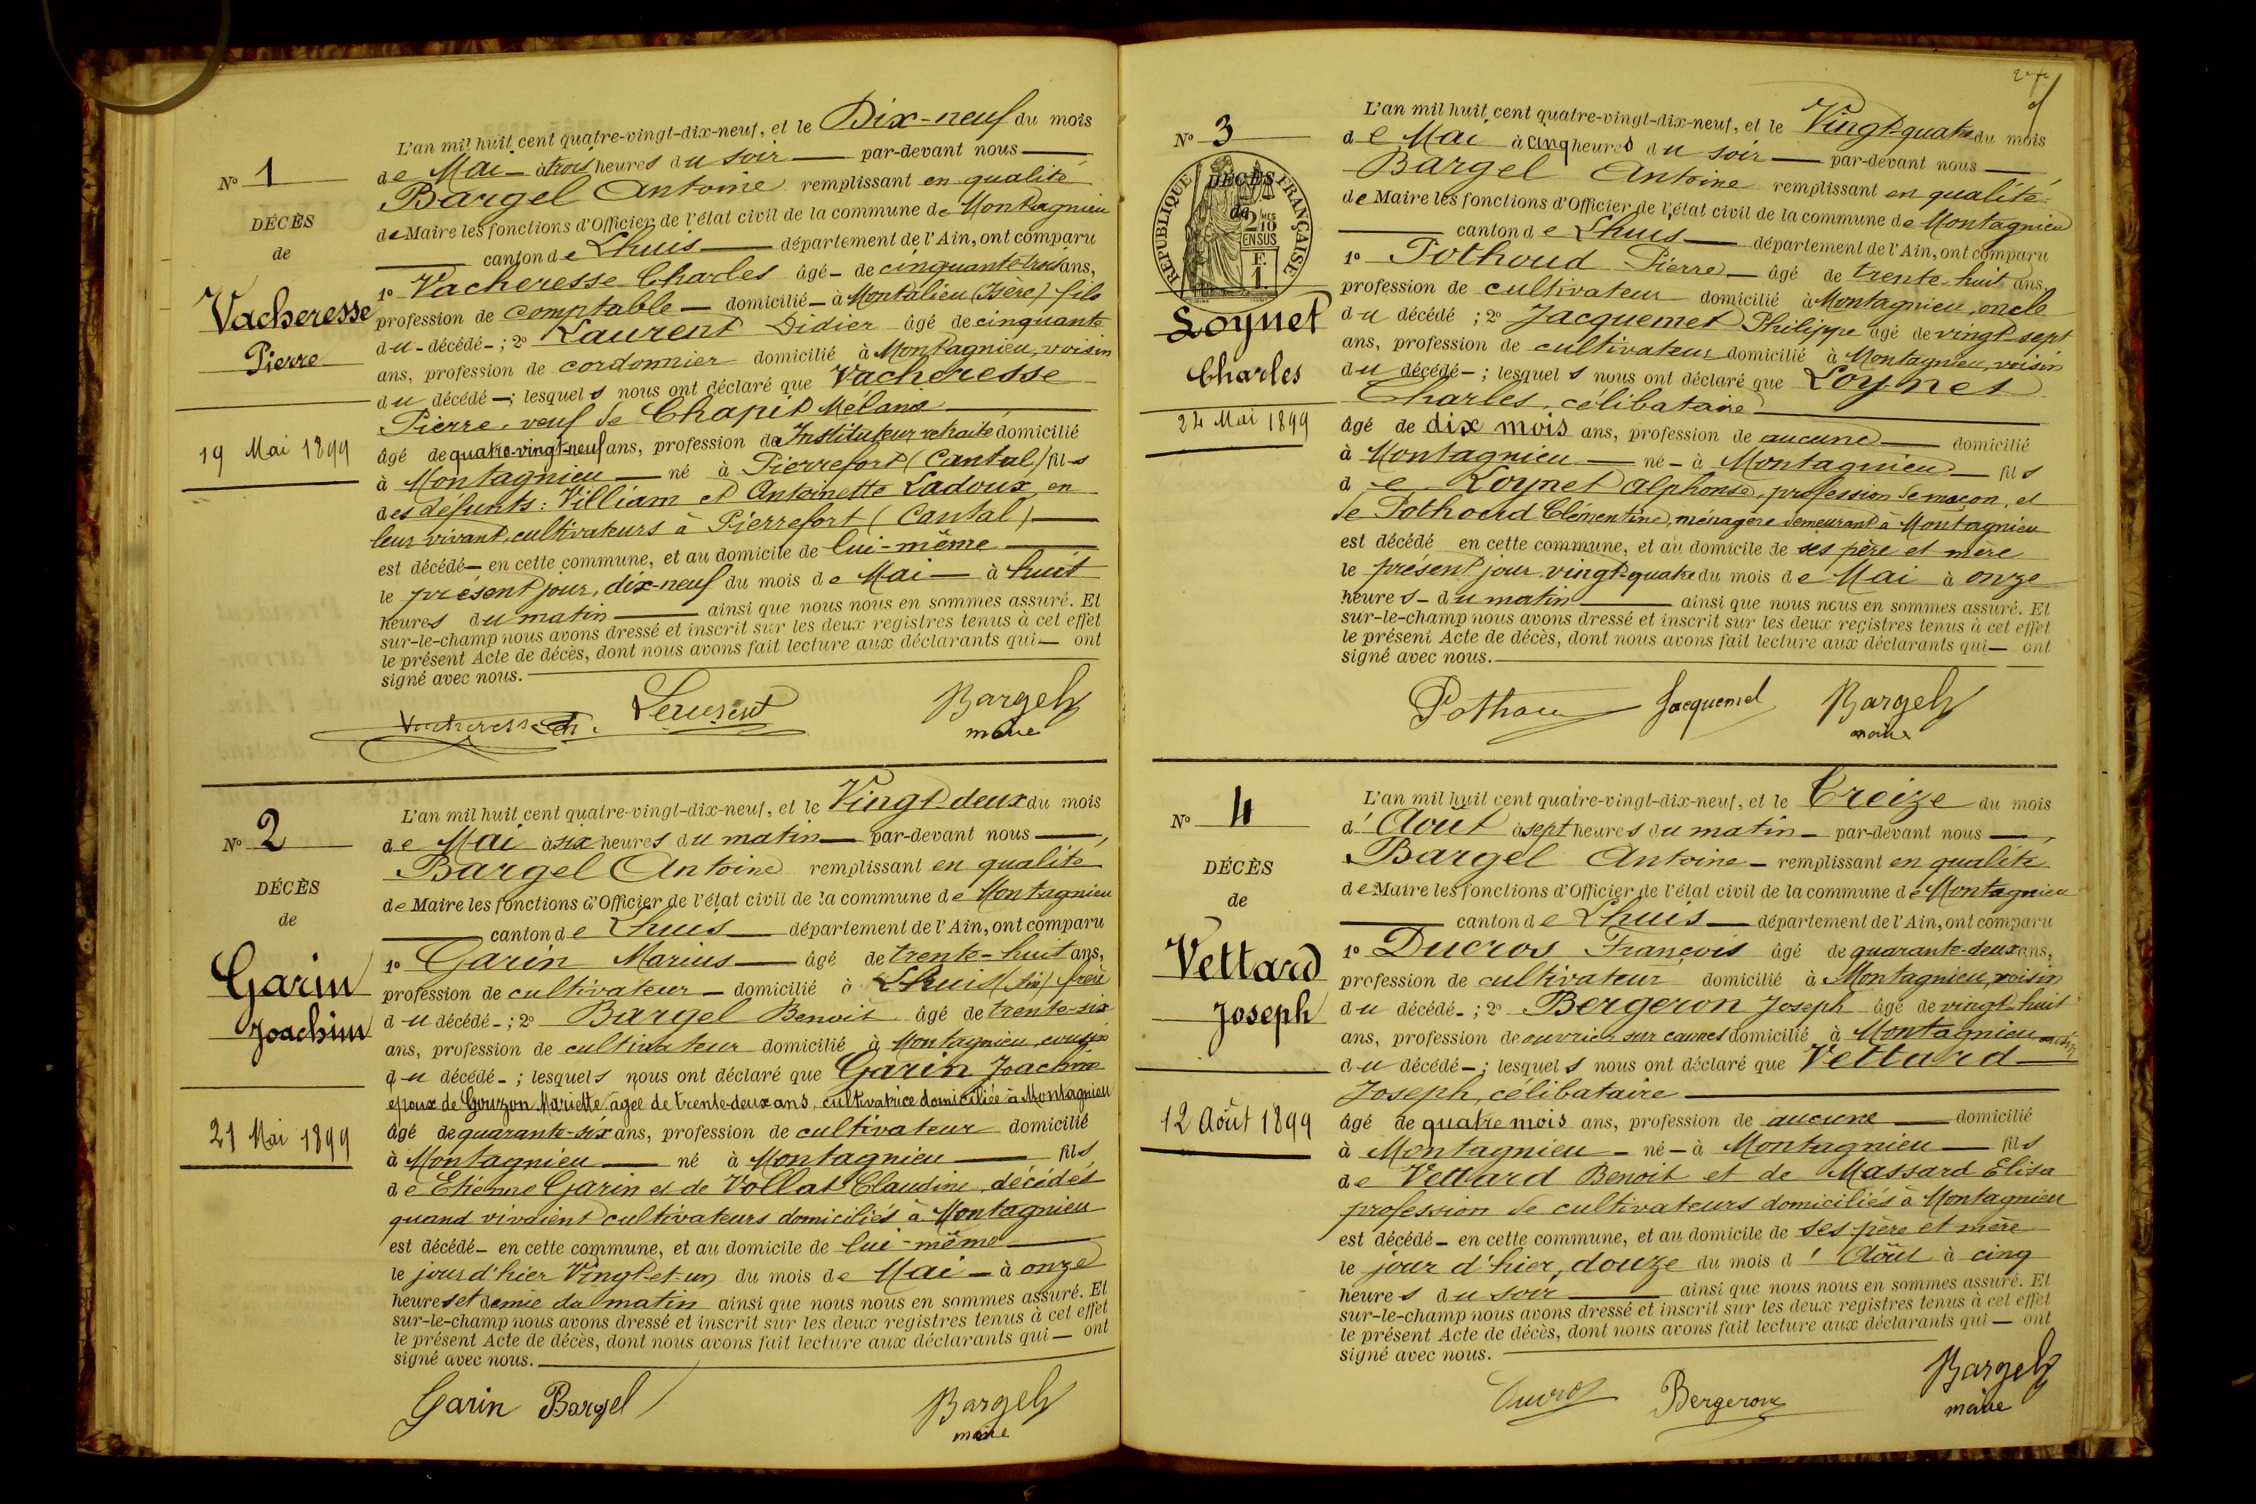 N° 1
DÉCÈS
de
Vacheresse
Pierre
19 Mai 1899
L'an mil huit cent quatre-vingt-dix-neuf, et le Dix-neuf du mois
de Mai — à trois heures du soir — par-devant nous —
Bargel Antoine remplissant en qualité
de Maire les fonctions d'Officier de l'état civil de la commune de Montagnieu
— canton de Lhuis — département de l'Ain, ont comparu
1° Vacheresse Charles âgé - de cinquante-trois ans,
profession de comptable — domicilié - à Montalieu (Isère) fils
du - décédé - ; 2° Laurent Didier âgé de cinquante
ans, profession de cordonnier domicilié à Montagnieu, voisin
du décédé — ; lesquels nous ont déclaré que Vacheresse
Pierre, veuf de Chapit
âgé de quatre-vingt-neuf ans, profession de Instituteur retraité domicilié
à Montagnieu — né à Pierrefort (Cantal) fils
des défunts : Villiam et Antoinette Ladoux, en
leur vivant, cultivateurs à Pierrefort (Cantal) —
est décédé — en cette commune, et au domicile de lui-même —
le présent jour, dix-neuf du mois de Mai — à huit
heures du matin — ainsi que nous nous en sommes assuré. Et
sur-le-champ nous avons dressé et inscrit sur les deux registres tenus à cet effet
le présent Acte de décès, dont nous avons fait lecture aux déclarants qui — ont
signé avec nous.
Vacheresse Ch. Laurent Bargel
maire
N° 2
DÉCÈS
de
Garin
Joachim
21 Mai 1899
L'an mil huit cent quatre-vingt-dix-neuf, et le Vingt-deux du mois
de Mai à six heures du matin — par-devant nous —,
Bargel Antoine remplissant en qualité
de Maire les fonctions d'Officier de l'état civil de la commune de Montagnieu
— canton de Lhuis — département de l'Ain, ont comparu
1° Garin Marius — âgé de trente-huit ans,
profession de cultivateur — domicilié à Lhuis (Ain) frère
du décédé - ; 2° Bargel Benoit âgé de trente-six
ans, profession de cultivateur domicilié à Montagnieu, cousin
du décédé - ; lesquels nous ont déclaré que Garin Joachim
époux de Gouzon Mariette, âgée de trente-deux ans, cultivatrice domiciliée à Montagnieu
âgé de quarante-six ans, profession de cultivateur domicilié
à Montagnieu — né à Montagnieu — fils
de Etienne Garin et de Vollat Claudine, décédés
quand vivaient cultivateurs domiciliés à Montagnieu
est décédé - en cette commune, et au domicile de lui-même —
le jour d'hier Vingt-et-un du mois de Mai — à onze
heures et demie du matin ainsi que nous nous en sommes assuré. Et
sur-le-champ nous avons dressé et inscrit sur les deux registres tenus à cet effet
le présent Acte de décès, dont nous avons fait lecture aux déclarants qui — ont
signé avec nous. —
Garin Bargel Bargel
maire
N° 3
RÉPUBLIQUE FRANÇAISE
DÉCÈS
de
2/10
EN SUS
F.
1.
Loynet
Charles
24 Mai 1899
L'an mil huit cent quatre-vingt-dix-neuf, et le Vingt-quatre du mois
de Mai à cinq heures du soir — par-devant nous —
Bargel Antoine remplissant en qualité
de Maire les fonctions d'Officier de l'état civil de la commune de Montagnieu
— canton de Lhuis — département de l'Ain, ont comparu
1° Pothoud Pierre — âgé de trente-huit ans,
profession de cultivateur domicilié à Montagnieu, oncle
du décédé ; 2° Jacquemet Philippe âgé de vingt-sept
ans, profession de cultivateur domicilié à Montagnieu, voisin
du décédé - ; lesquels nous ont déclaré que Loynet
Charles, célibataire —
âgé de dix mois ans, profession de aucune — domicilié
à Montagnieu — né - à Montagnieu — fils
de Loynet Alphonse, profession de maçon, et
de Pothoud Clémentine, ménagère demeurant à Montagnieu
est décédé en cette commune, et au domicile de ses père et mère
le présent jour vingt-quatre du mois de Mai à onze
heures - du matin — ainsi que nous nous en sommes assuré. Et
sur-le-champ nous avons dressé et inscrit sur les deux registres tenus à cet effet
le présent Acte de décès, dont nous avons fait lecture aux déclarants qui — ont
signé avec nous. —
Pothou Jacquemet Bargel
maire
N° 4
DÉCÈS
de
Vettard
Joseph
12 Août 1899
L'an mil huit cent quatre-vingt-dix-neuf, et le Treize du mois
d' Août à sept heures du matin — par-devant nous —,
Bargel Antoine — remplissant en qualité
de Maire les fonctions d'Officier de l'état civil de la commune de Montagnieu
— canton de Lhuis — département de l'Ain, ont comparu
1° Ducros François âgé de quarante-deux ans,
profession de cultivateur domicilié à Montagnieu, voisin
du décédé - ; 2° Bergeron Joseph âgé de vingt-huit
ans, profession de ouvrier sur domicilié à Montagnieu
du décédé - ; lesquels nous ont déclaré que Vettard —
Joseph, célibataire —
âgé de quatre mois ans, profession de aucune — domicilié
à Montagnieu — né - à Montagnieu — fils
de Vettard Benoit et de Massard Elisa
profession de cultivateurs domiciliés à Montagnieu
est décédé - en cette commune, et au domicile de ses père et mère
le jour d'hier, douze du mois d' Août à cinq
heures du soir — ainsi que nous nous en sommes assuré. Et
sur-le-champ nous avons dressé et inscrit sur les deux registres tenus à cet effet
le présent Acte de décès, dont nous avons fait lecture aux déclarants qui — ont
signé avec nous. —
Ducros Bergeron Bargel
maire